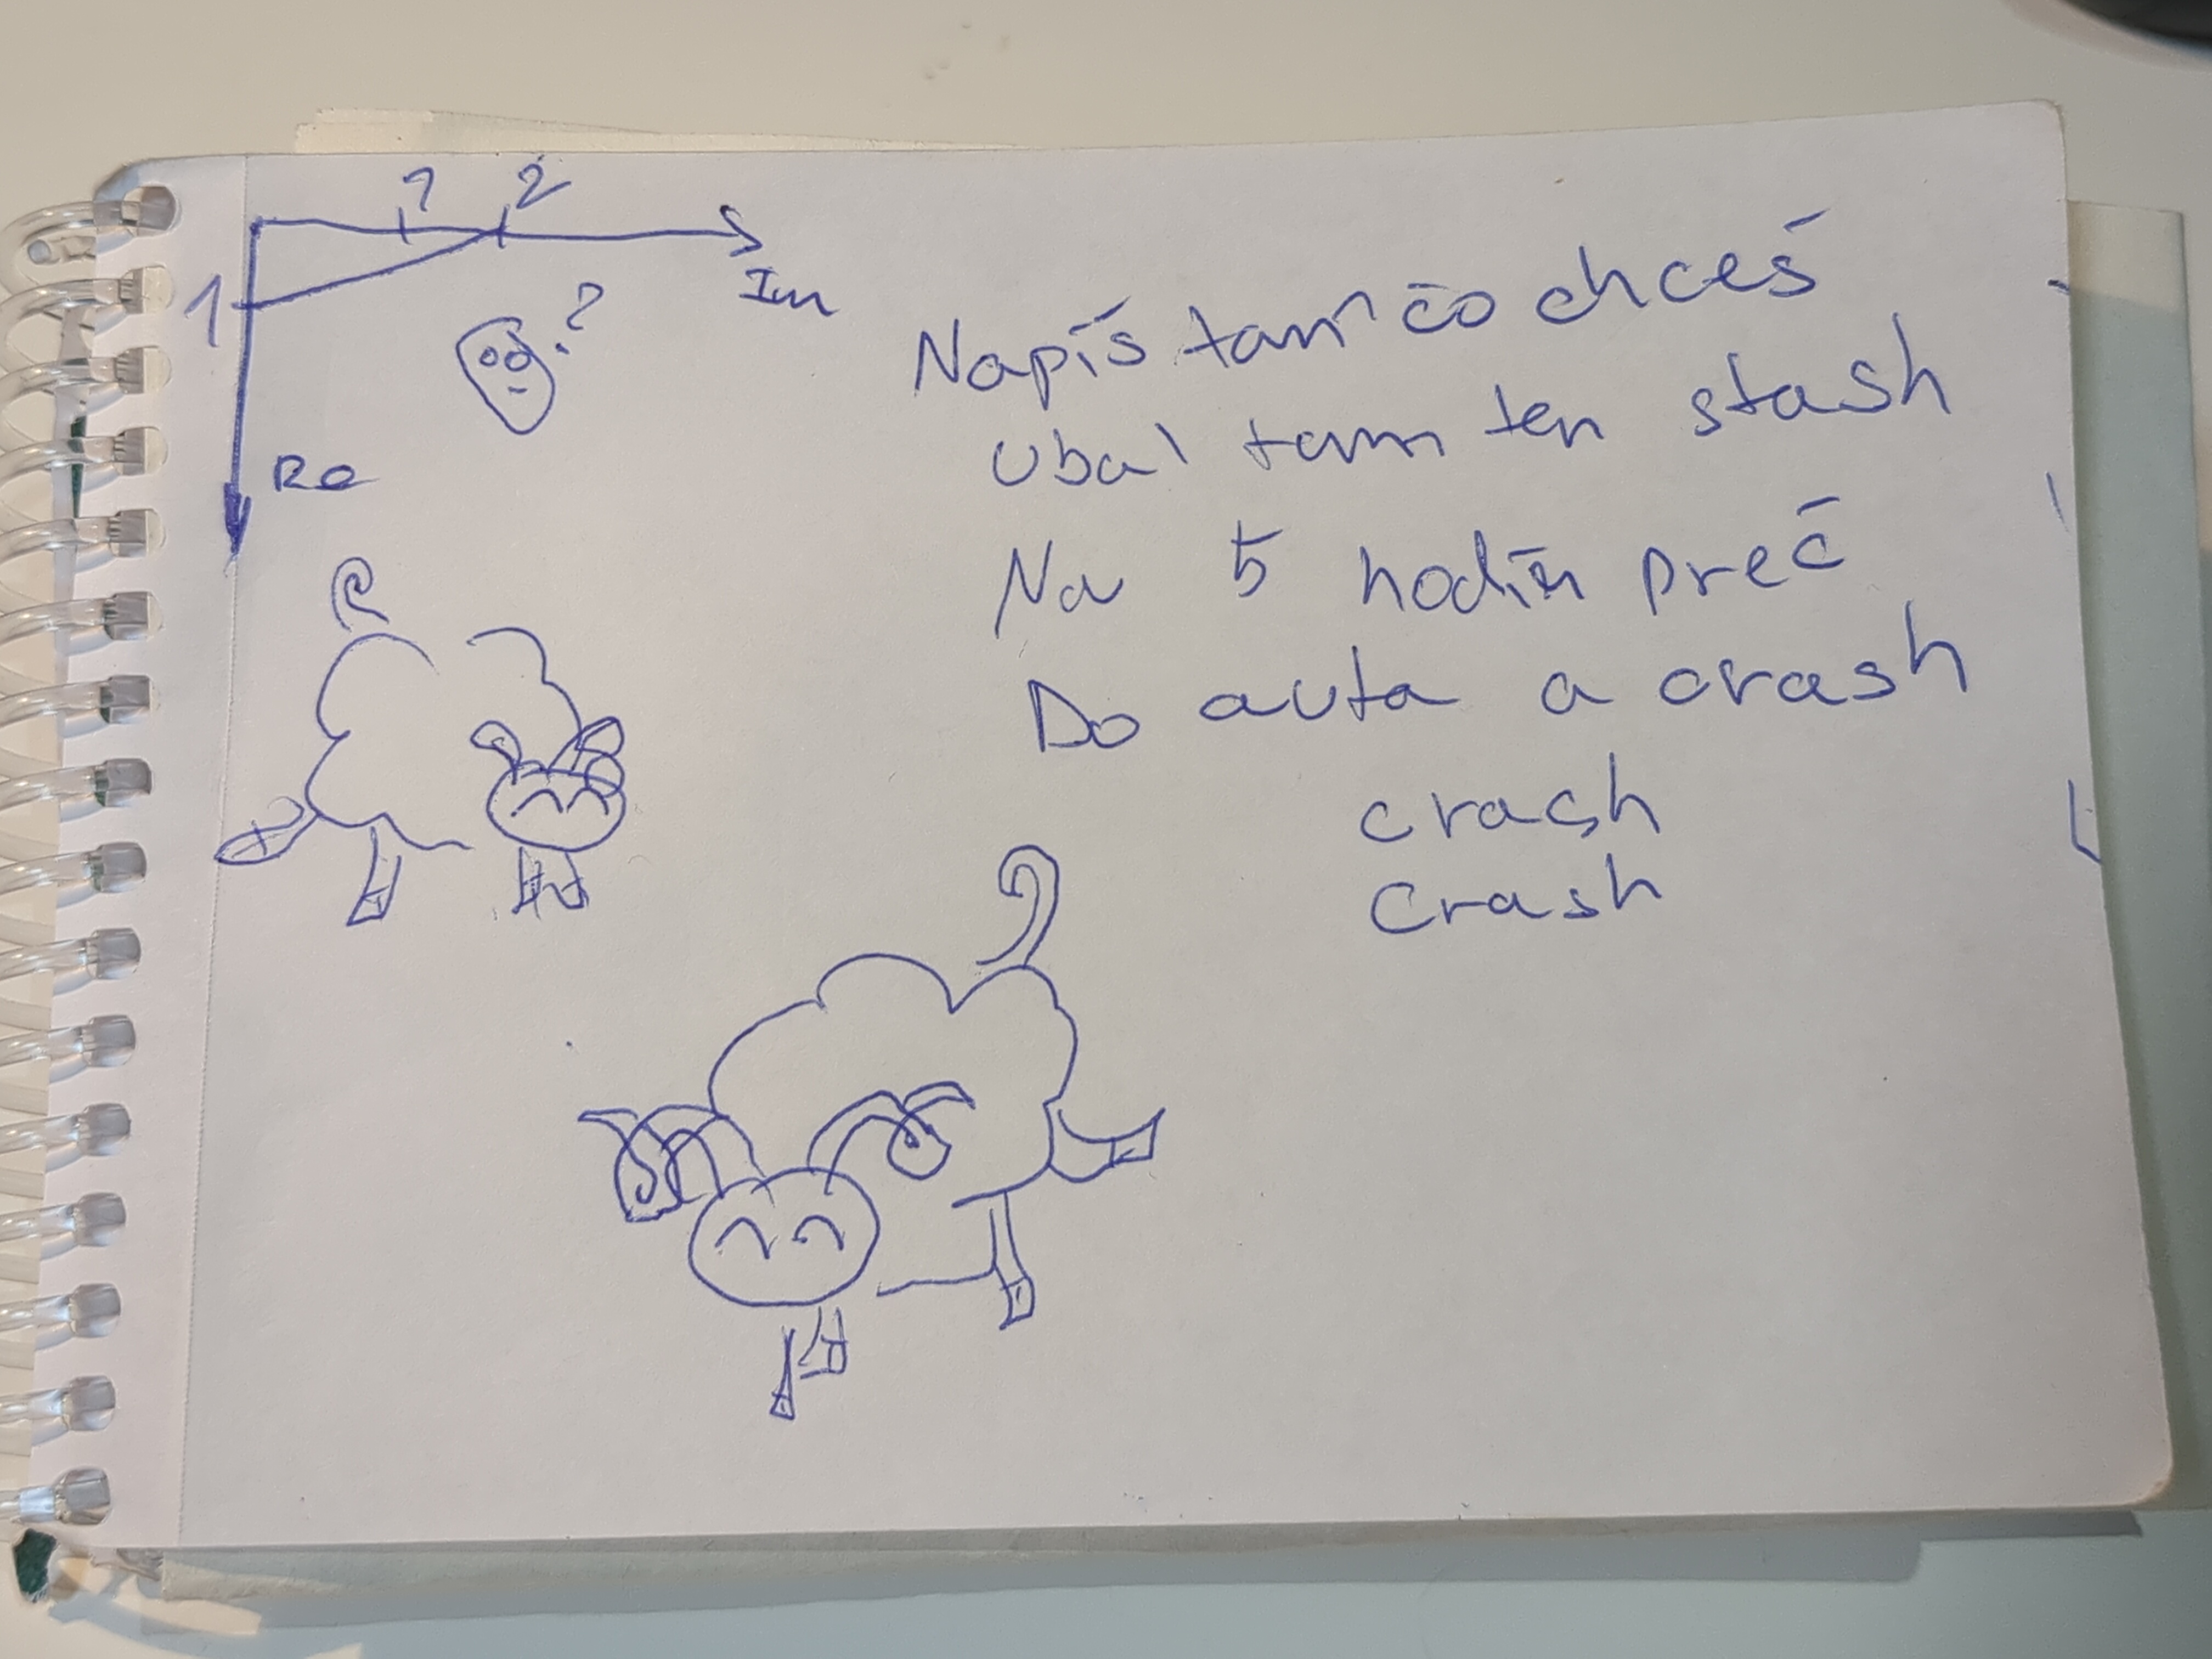 1 2
Im
1
?
Re
Napíš tam čo chceš
Ubal tam ten stash
Na 5 hodín preč
Do auta a crash
crash
Crash